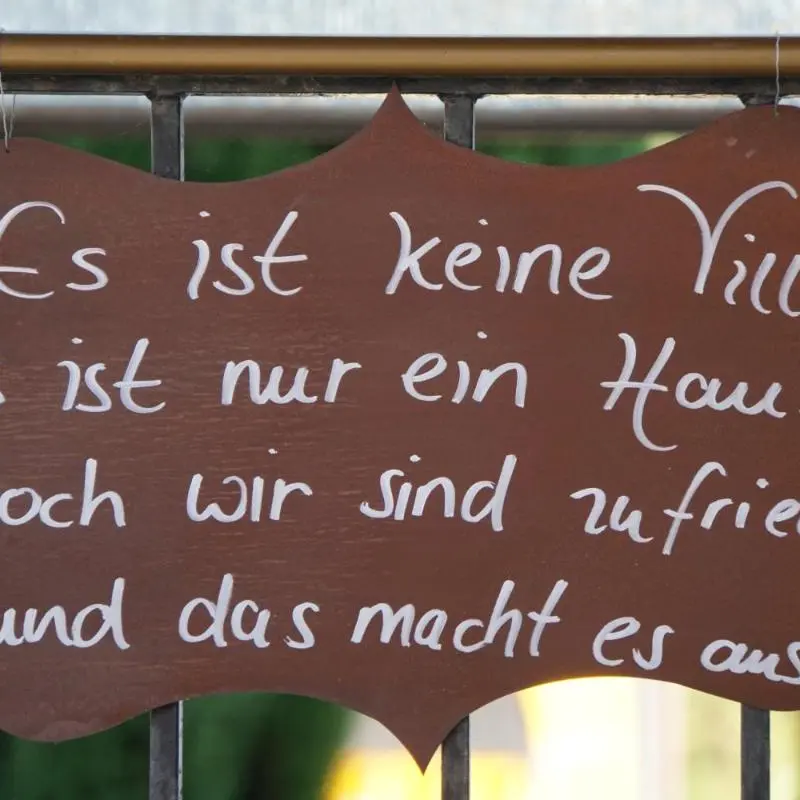 Es ist keine Vill
ist nur ein Hau
och wir sind zufrie
und das macht es aus